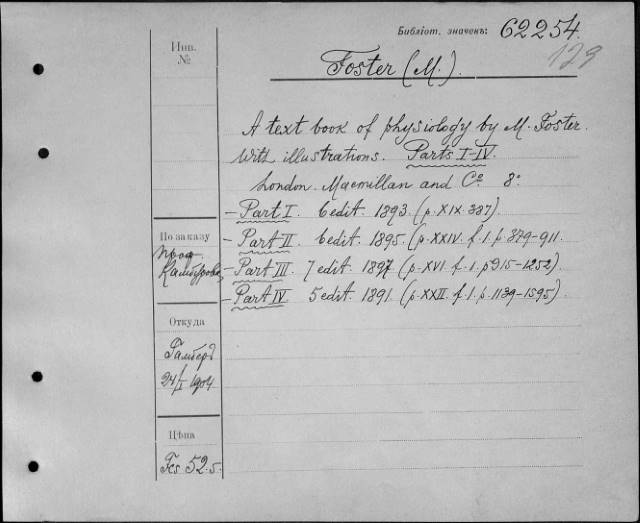 Библіот. значенъ: 62254.
129
Инв.
№
Foster (M.).
A text book of physiology by M. Foster.
With illustrations. Parts I-IV.
London. Macmillan and Cº 8º
- Part I. 6 edit. 1893. (p. XIX. 387).
По заказу
- Part II. 6 edit. 1895. (p. XXIV. f. 1. p. 379-911.
проф.
- Part III. 7 edit. 1897 (p. XVI f. 1. p 915-1252).
- Part IV 5 edit. 1891 (p. XXII. f. 1. p. 1139-1595).
Откуда
24/I 1904
Цѣна
Fcs 52.5.